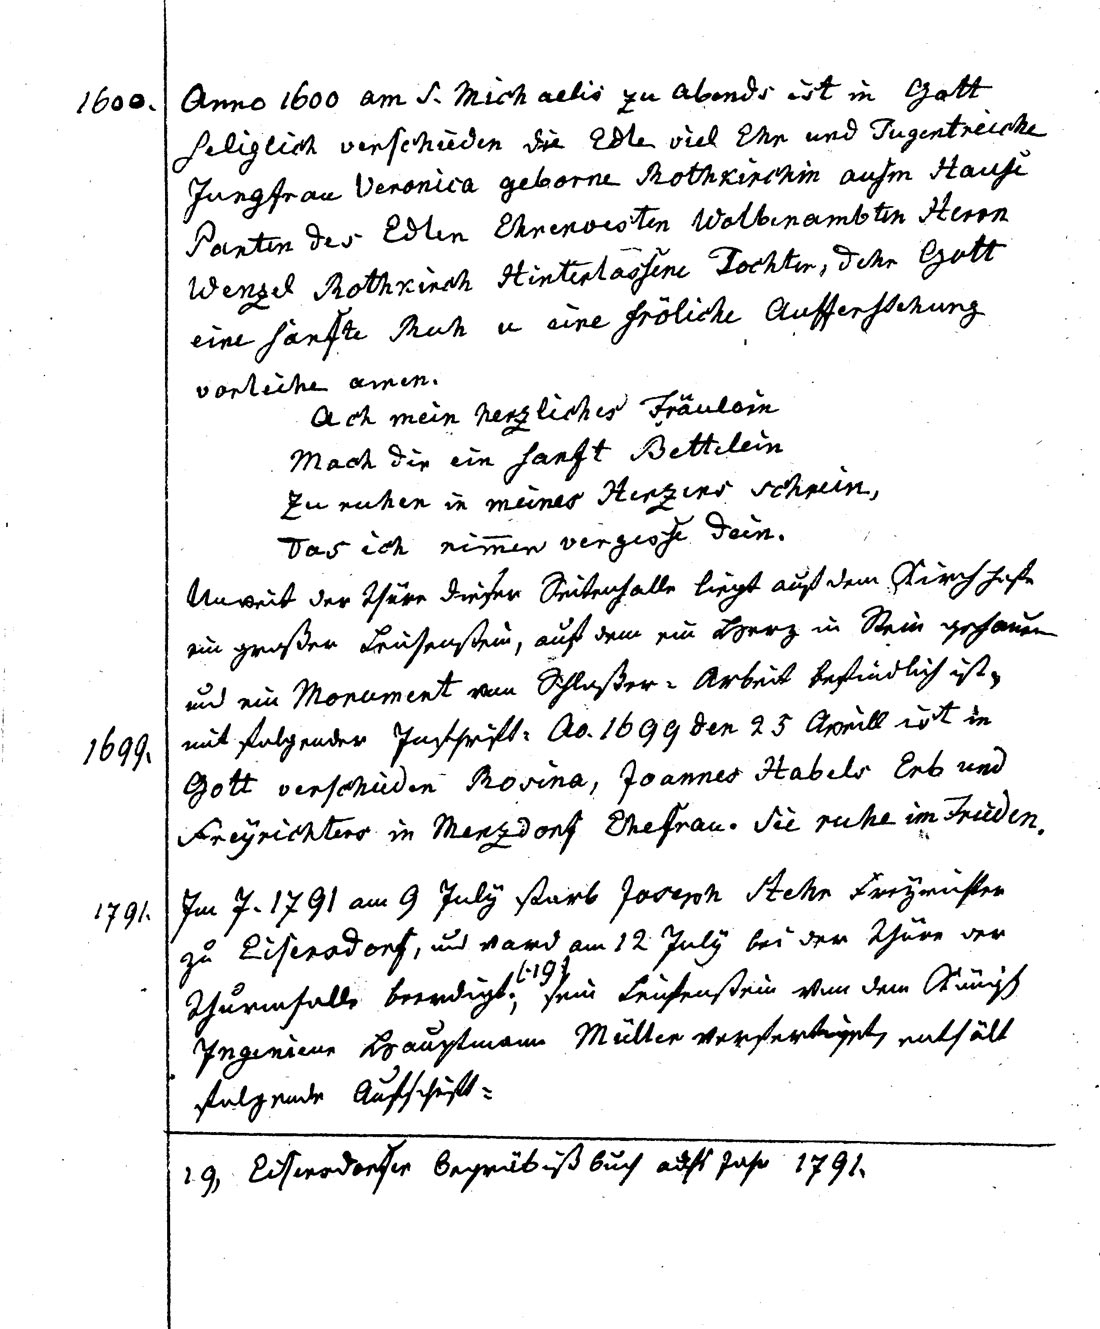 1600. Anno 1600 am S. Michaelis zu abends ist in Gott
seliglich verschieden die Edle viel Ehr und Tugentreiche
Jungfrau Veronica geborne Rothkirchin ausm Hause
Panten des Edlen Ehrenvesten Wolbenambten Herrn
Wenzel Rothkirch Hinterlassene Tochter, dehr Gott
eine sanfte Ruh u eine fröliche Aufferstehung
vorleihe amen.
Ach mein herzliches Fräulein
Mach dir ein sanft Bettelein
Zu ruhen in meines Herzens schrein,
Das ich nim̅er vergesse dein.
Unweit der Thüre dieser Seitenhalle liegt auf dem Kirchhofe
ein großer Leichenstein, auf dem ein Herz in Stein gehauen
und ein Monument von Schloßer-Arbeit befindlich ist,
1699. mit folgender Inschrift: Ao. 1699 den 25 Aprill ist in
Gott verschieden Rosina, Joannes Habels Erb und
Freÿrichters in Merzdorf Ehefrau. Sie ruhe im Frieden.
1791. Im J. 1791 am 9 Julÿ starb Joseph Stehr Freÿrichter
zu Eisersdorf, und ward am 12 Julÿ bei der Thüre der
Thurmhalle beerdigt; (:19:) sein Leichenstein von dem Königl
Ingenieur Hauptmann Müller verfertiget, enthält
folgende Aufschrift:
19, Eisersdorfer Begräbniß buch Jahr 1791.